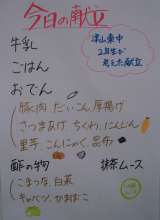 今日の献立
津山東中
2年生が
考えた献立
牛乳
ごはん
おでん
豚肉、だいこん、厚揚げ
さつまあげ、ちくわ、にんじん
里芋、こんにゃく、昆布
酢の物
抹茶ムース
こまつな、白菜
キャベツ、かまぼこ